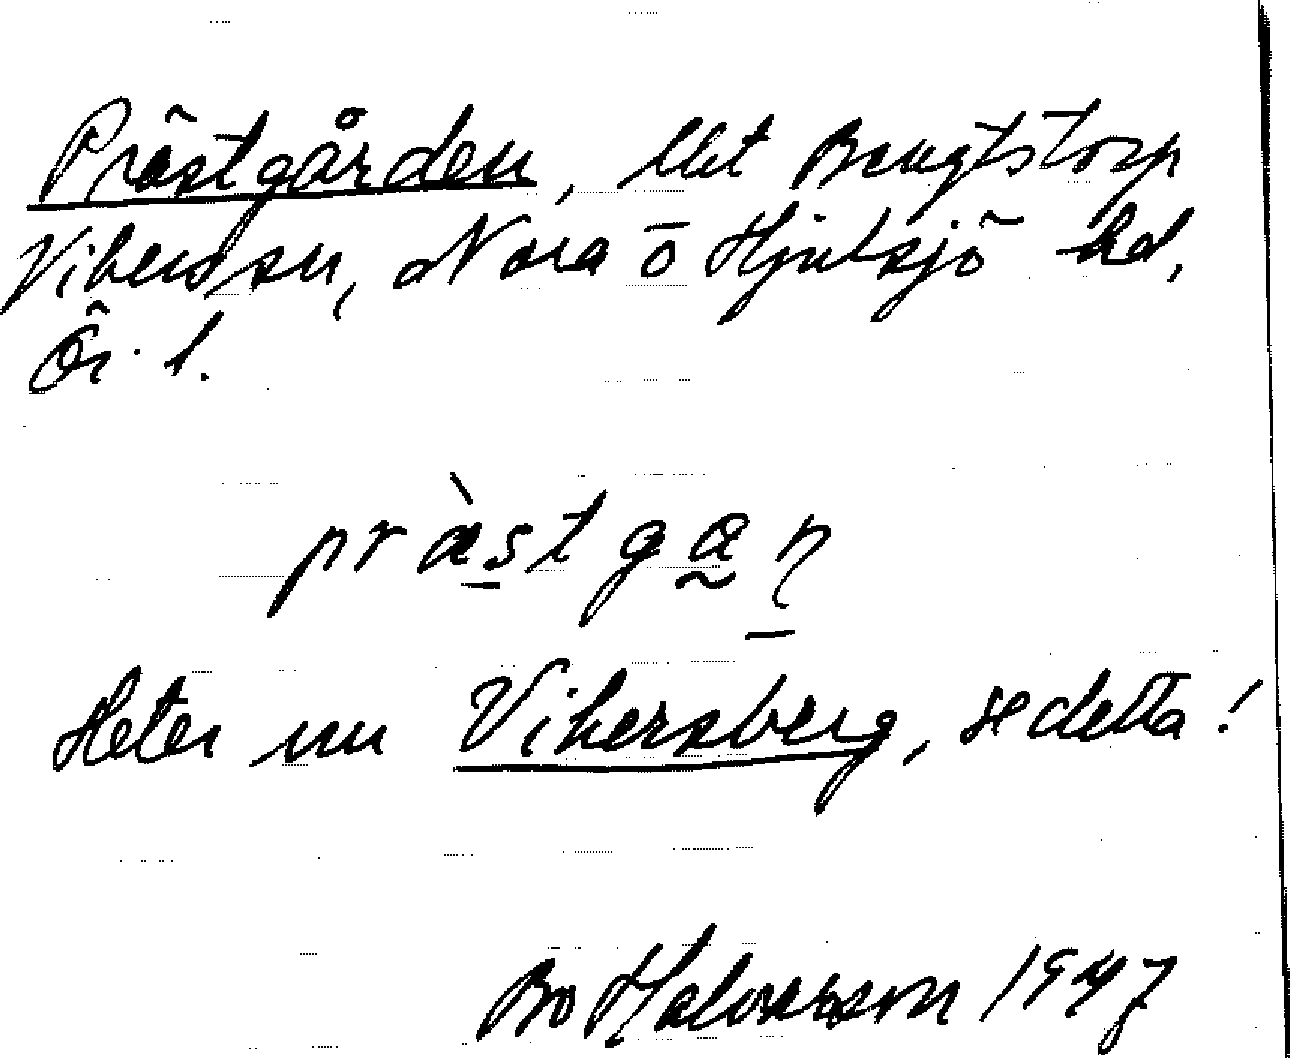 Prästgården, lht Bengtstorp
Vikers sn, Nora o Hjulsjö hd,
Ör. l.
pràstgan
Heter nu Vikersberg, se detta!
Bo Halvarsson 1947